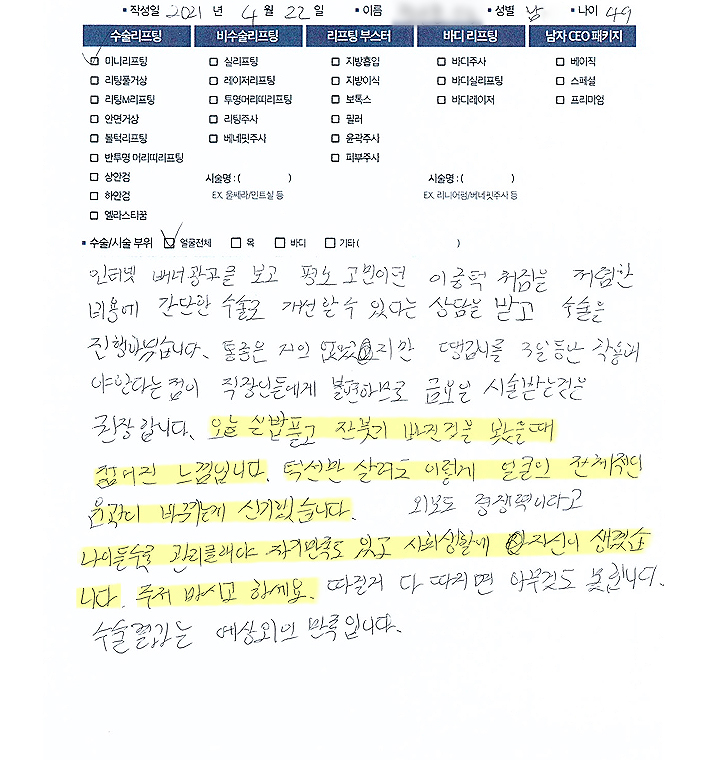 ▪ 작성일 2021 년 4 월 22 일 ▪ 이름 ▪ 성별 남 ▪ 나이 49
수술리프팅 비수술리프팅 리프팅 부스터 바디 리프팅 남자 CEO 패키지
미니리프팅 실리프팅 지방흡입 바디주사 베이직
리팅풀거상 레이저리프팅 지방이식 바디실리프팅 스페셜
리팅M리프팅 투명머리띠리프팅 보톡스 바디레이저 프리미엄
안면거상 리팅주사 필러
볼턱리프팅 베네핏주사 윤곽주사
반투명 머리띠리프팅 피부주사
상안검 시술명 : ( ) 시술명 : ( )
하안검 EX. 울쎄라/인트실 등 EX. 리니어펌/베네핏주사 등
엘라스티꿈
▪ 수술/시술 부위 얼굴전체 목 바디 기타 ( )
인터넷 배너광고를 보고 평소 고민이던 이중턱 처짐을 저렴한
비용에 간단한 수술로 개선할 수 있다는 상담을 받고 수술을
진행하였습니다. 통증은 거의 없었지만 땡김이를 3일동안 착용해
야 한다는 점이 직장인들에게 불편하므로 금요일 시술받는것을
권장합니다. 오늘 실밥풀고 잔붓기 빠진것을 봤을때
젊어진 느낌입니다. 턱선만 살려도 이렇게 얼굴의 전체적인
윤곽이 바뀌는게 신기했습니다. 외모도 경쟁력이라고
나이들수록 관리를해야 자기만족도 있고 사회생활에 자신이 생겼습
니다. 주저 마시고 함께요. 따질거 다 따지면 아무것도 못합니다.
수술결과는 예상외의 만족입니다.